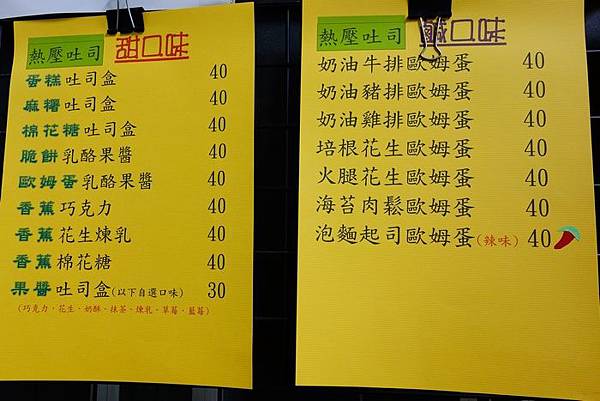 熱壓吐司 甜口味
蛋糕吐司盒 40
麻糬吐司盒 40
棉花糖吐司盒 40
脆餅乳酪果醬 40
歐姆蛋乳酪果醬 40
香蕉巧克力 40
香蕉花生煉乳 40
香蕉棉花糖 40
果醬吐司盒(以下自選口味) 30
(巧克力、花生、奶酥、抹茶、煉乳、草莓、藍莓)
熱壓吐司 鹹口味
奶油牛排歐姆蛋 40
奶油豬排歐姆蛋 40
奶油雞排歐姆蛋 40
培根花生歐姆蛋 40
火腿花生歐姆蛋 40
海苔肉鬆歐姆蛋 40
泡麵起司歐姆蛋(辣味) 40